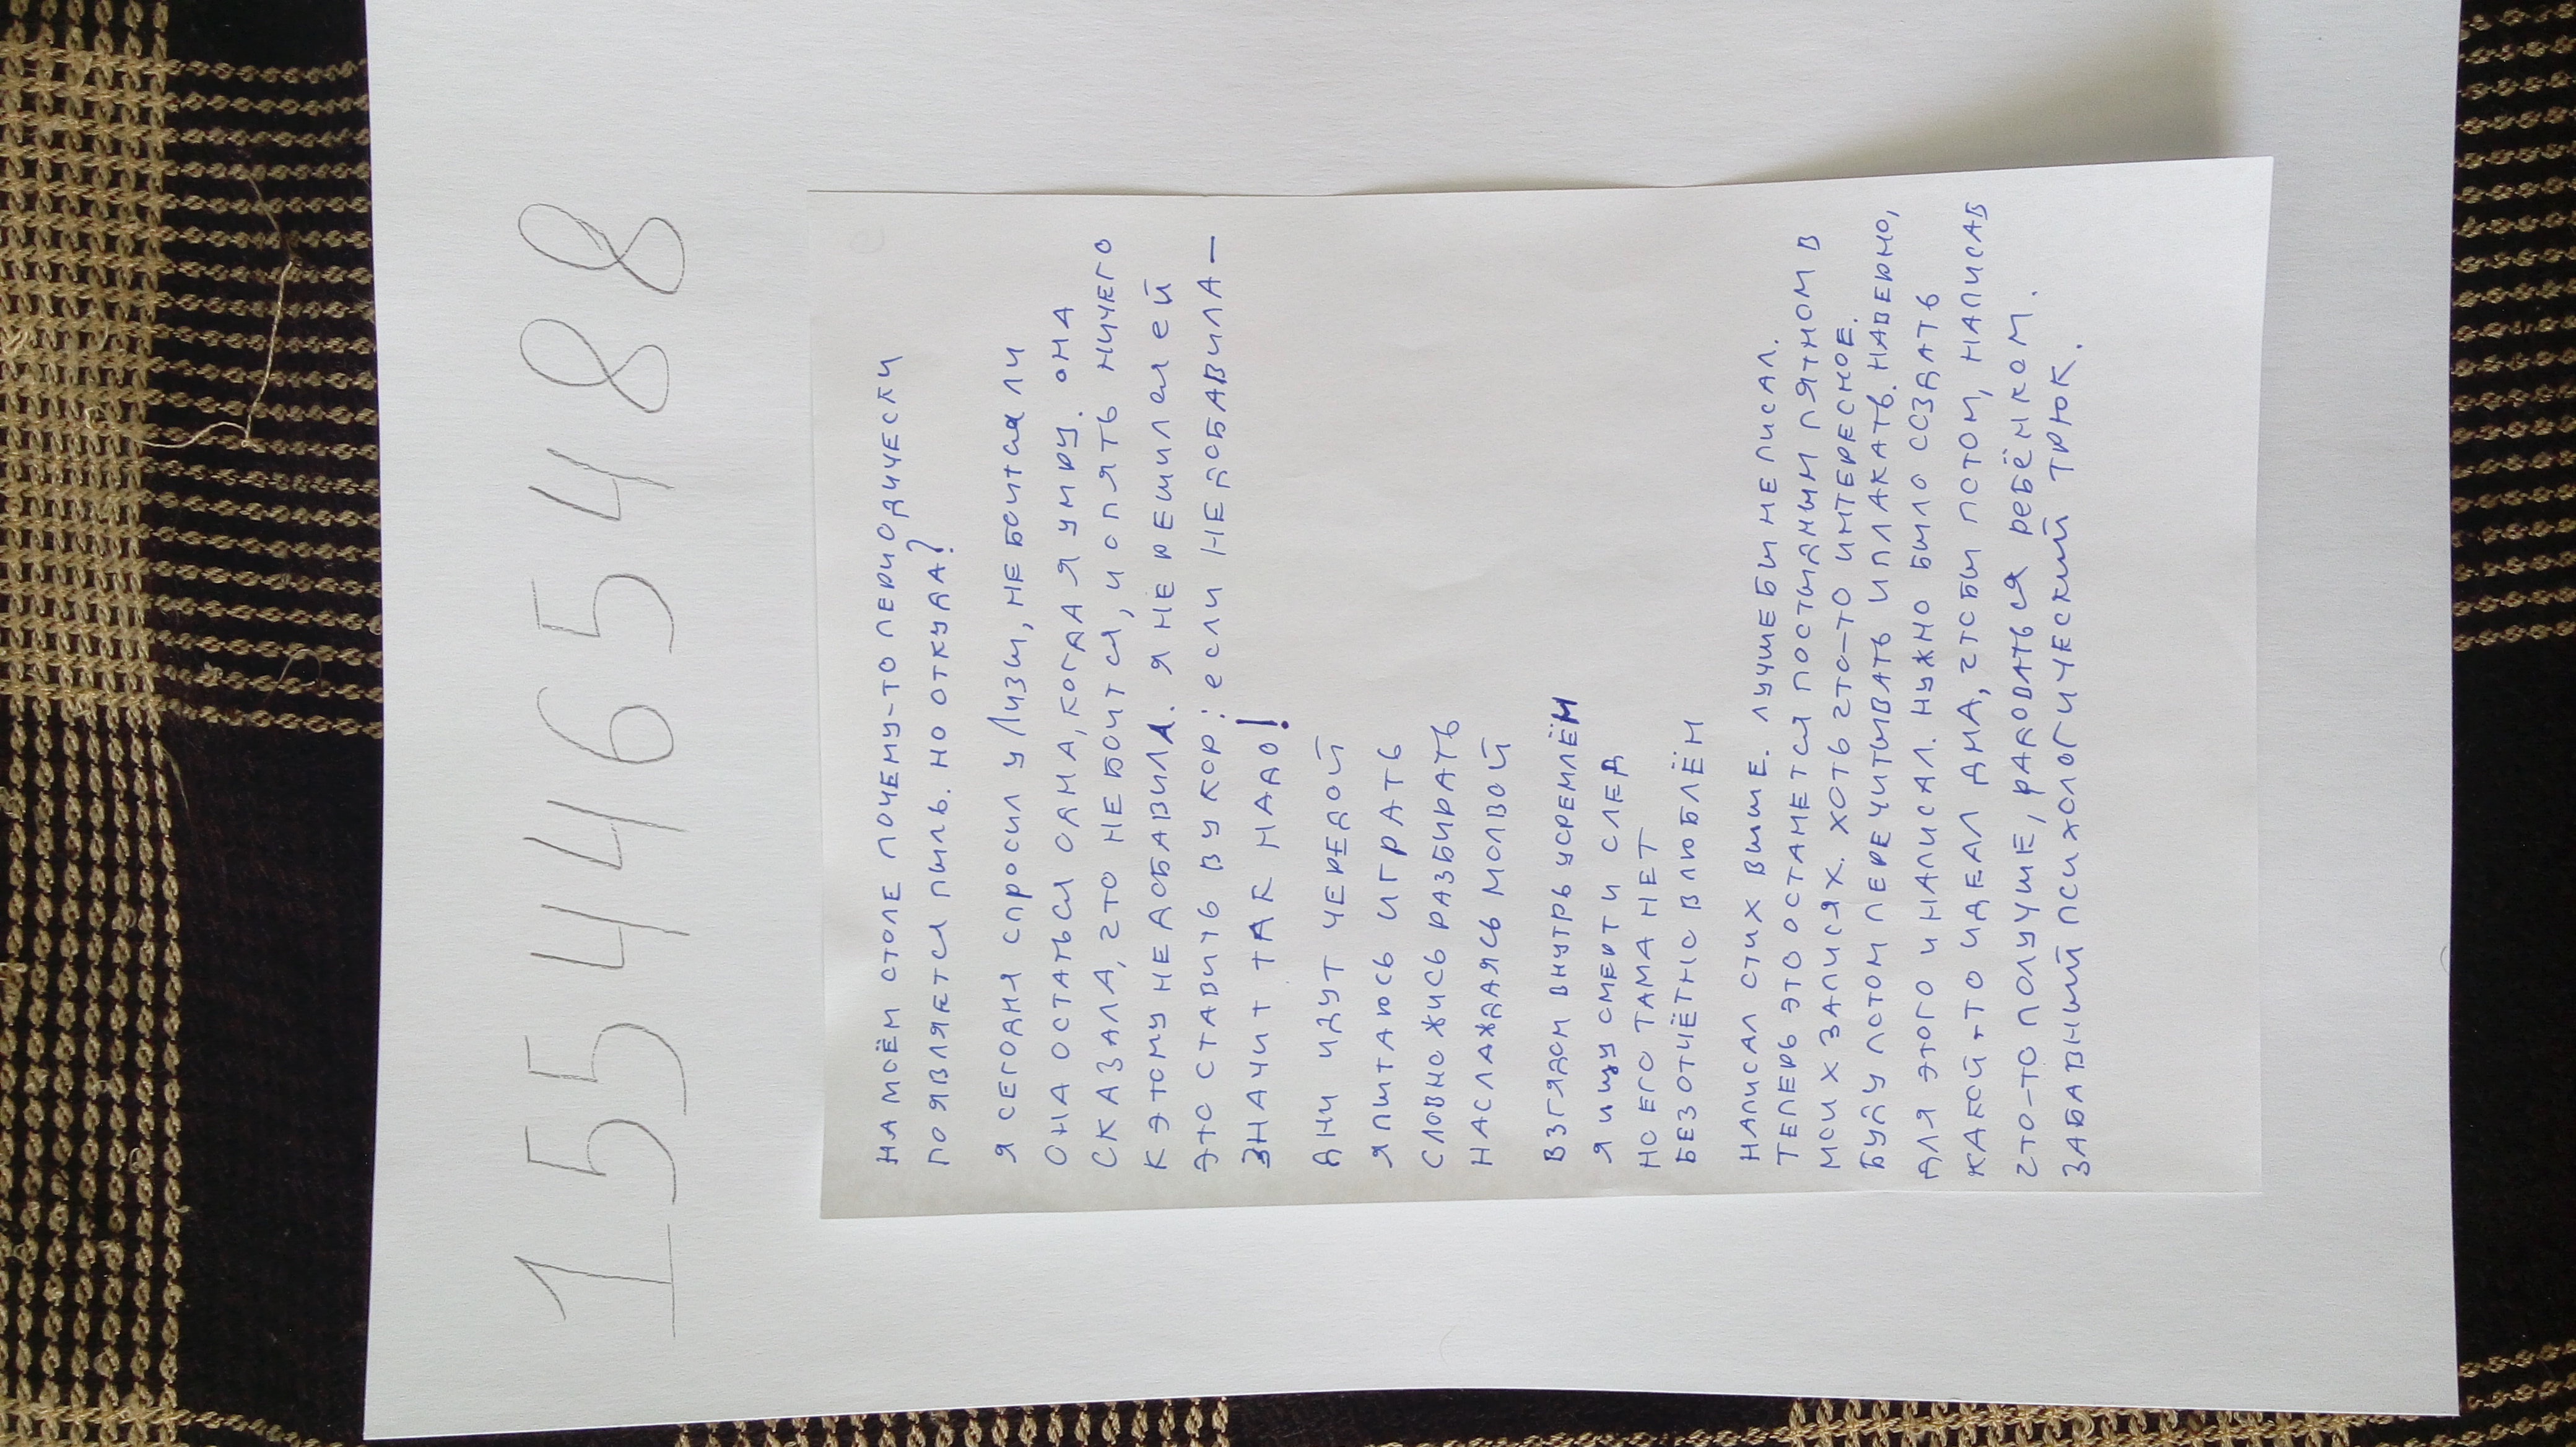 155465488
НА МОЁМ СТОЛЕ ПОЧЕМУ-ТО ПЕРИОДИЧЕСКИ
ПОЯВЛЯЕТСЯ ПЫЛЬ. НО ОТКУДА?
Я СЕГОДНЯ СПРОСИЛ У ЛИЗЫ, НЕ БОИТСЯ ЛИ
ОНА ОСТАТЬСЯ ОДНА, КОГДА Я УМРУ. ОНА
СКАЗАЛА, ЧТО НЕ БОИТСЯ, И ОПЯТЬ НИЧЕГО
К ЭТОМУ НЕ ДОБАВИЛА. Я НЕ РЕШИЛСЯ ЕЙ
ЭТО СТАВИТЬ В УКОР: ЕСЛИ НЕ ДОБАВИЛА —
ЗНАЧИТ ТАК НАДО!
ДНИ ИДУТ ЧЕРЕДОЙ
Я ПЫТАЮСЬ ИГРАТЬ
СЛОВНО ЖИСЬ РАЗБИРАТЬ
НАСЛАЖДАЯСЬ МОЛВОЙ
ВЗГЯДОМ ВНУТРЬ УСРЕМЛЁМ
Я ИЩУ СМЕРТИ СЛЕД
НО ЕГО ТАМА НЕТ
БЕЗОТЧЁТНО ВЛЮБЛЁМ
НАПИСАЛ СТИХ ВЫШЕ. ЛУЧШЕ БЫ НЕ ПИСАЛ.
ТЕПЕРЬ ЭТО ОСТАНЕТСЯ ПОСТЫДНЫМ ПЯТНОМ В
МОИХ ЗАПИСЯХ. ХОТЬ ЧТО-ТО ИНТЕРЕСНОЕ.
БУДУ ПОТОМ ПЕРЕЧИТЫВАТЬ И ПЛАКАТЬ. НАВЕРНО,
ДЛЯ ЭТОГО И НАПИСАЛ. НУЖНО БЫЛО СОЗДАТЬ
КАКОЙ-ТО ИДЕАЛ ДНА, ЧТОБЫ ПОТОМ, НАПИСАВ
ЧТО-ТО ПОЛУЧШЕ, РАДОВАТЬСЯ РЕБЁНКОМ.
ЗАБАВНЫЙ ПСИХОЛОГИЧЕСКИЙ ТРЮК.